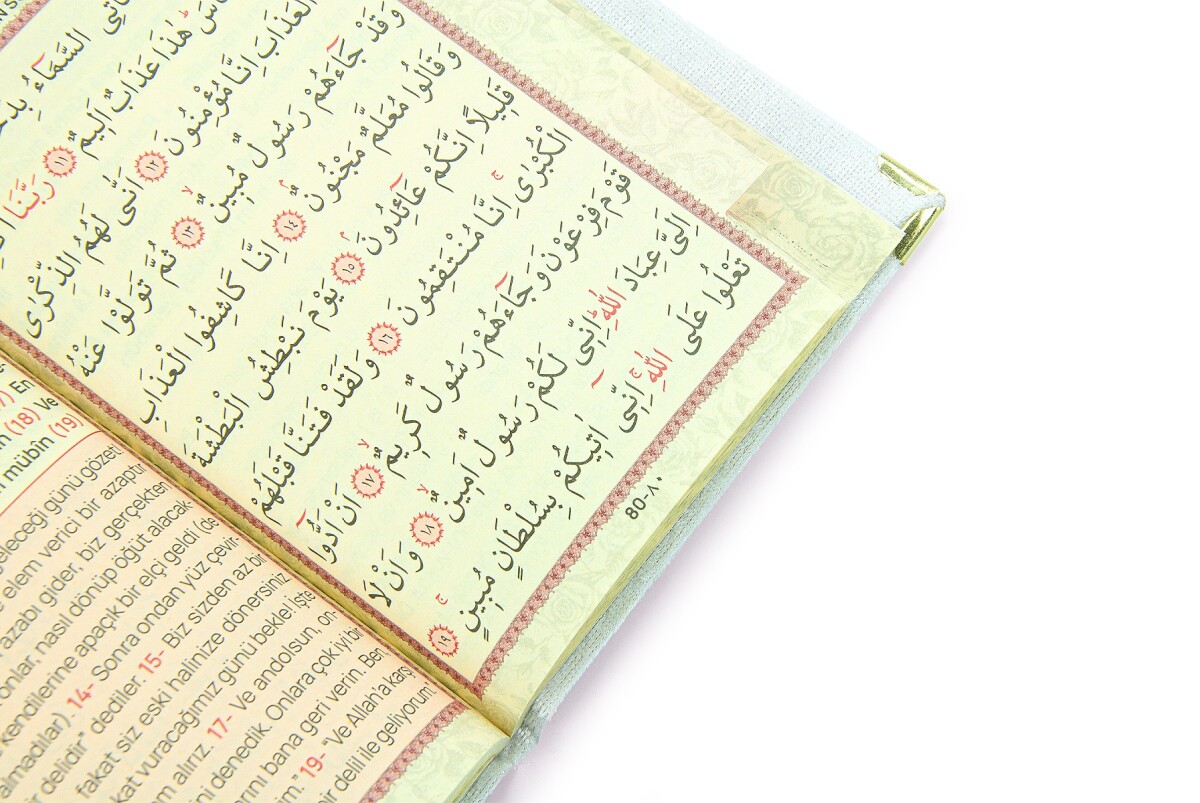 تَاْتِى السَّمَٓاءُ
هٰذَا عَذَابٌ اَلٖيمٌ ﴿١١﴾ رَبَّنَا
الْعَذَابَ اِنَّا مُؤْمِنُونَ ﴿١٢﴾ اَنّٰى لَهُمُ الذِّكْرٰى
وَقَدْ جَٓاءَهُمْ رَسُولٌ مُبٖينٌ ﴿١٣﴾ ثُمَّ تَوَلَّوْا عَنْهُ
وَقَالُوا مُعَلَّمٌ مَجْنُونٌ ﴿١٤﴾ اِنَّا كَاشِفُوا الْعَذَابِ
قَلٖيلاً اِنَّكُمْ عَٓائِدُونَ ﴿١٥﴾ يَوْمَ نَبْطِشُ الْبَطْشَةَ
الْكُبْرٰى اِنَّا مُنْتَقِمُونَ ﴿١٦﴾ وَلَقَدْ فَتَنَّا قَبْلَهُمْ
قَوْمَ فِرْعَوْنَ وَجَٓاءَهُمْ رَسُولٌ كَرٖيمٌ ﴿١٧﴾ اَنْ اَدُّٓوا
اِلَىَّ عِبَادَ اللّٰهِ اِنّٖى لَكُمْ رَسُولٌ اَمٖينٌ ﴿١٨﴾ وَاَنْ لَا
تَعْلُوا عَلَى اللّٰهِ اِنّٖٓى اٰتٖيكُمْ بِسُلْطَانٍ مُبٖينٍ ﴿١٩﴾
80-٨٠
En
(18) Ve
mübîn (19)
geleceği günü gözet!
elem verici bir azaptır.
azabı gider, biz gerçekten
onlar, nasıl dönüp öğüt alacak-
kendilerine apaçık bir elçi geldi (de
almadılar). 14- Sonra ondan yüz çevir-
bir delidir" dediler. 15- Biz sizden az bir
fakat siz eski halinize dönersiniz.
vuracağımız günü bekle! İşte
alırız. 17- Ve andolsun, on-
denedik. Onlara çok iyi bir
bana geri verin. Ben,
19- "Ve Allah'a karşı
bir delil ile geliyorum"